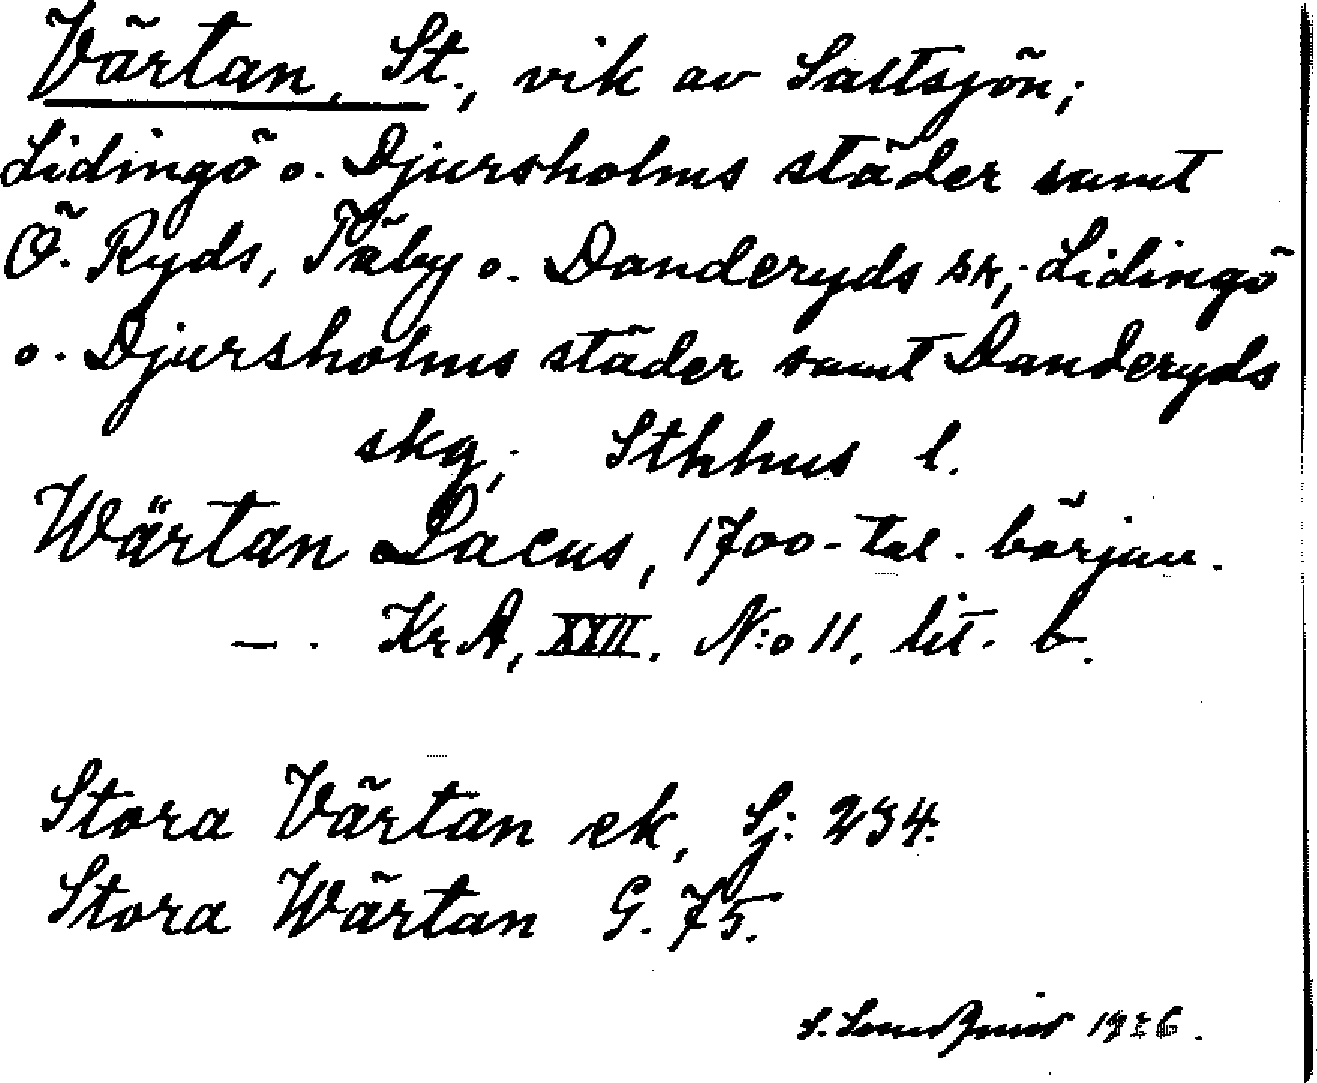 Värtan, St., vik av Saltsjön;
Lidingö o. Djursholms städer samt
Ö. Ryds, Täby o. Danderyds sk; Lidingö
o. Djursholms städer samt Danderyds
skg; Sthhus l.
Wärtan Lacus, 1700-tal. början.
— . KrA, XXII. N:o 11. lit. b.
Stora Värtan ek, Sj: 234.
Stora Wärtan G. 75.
S.